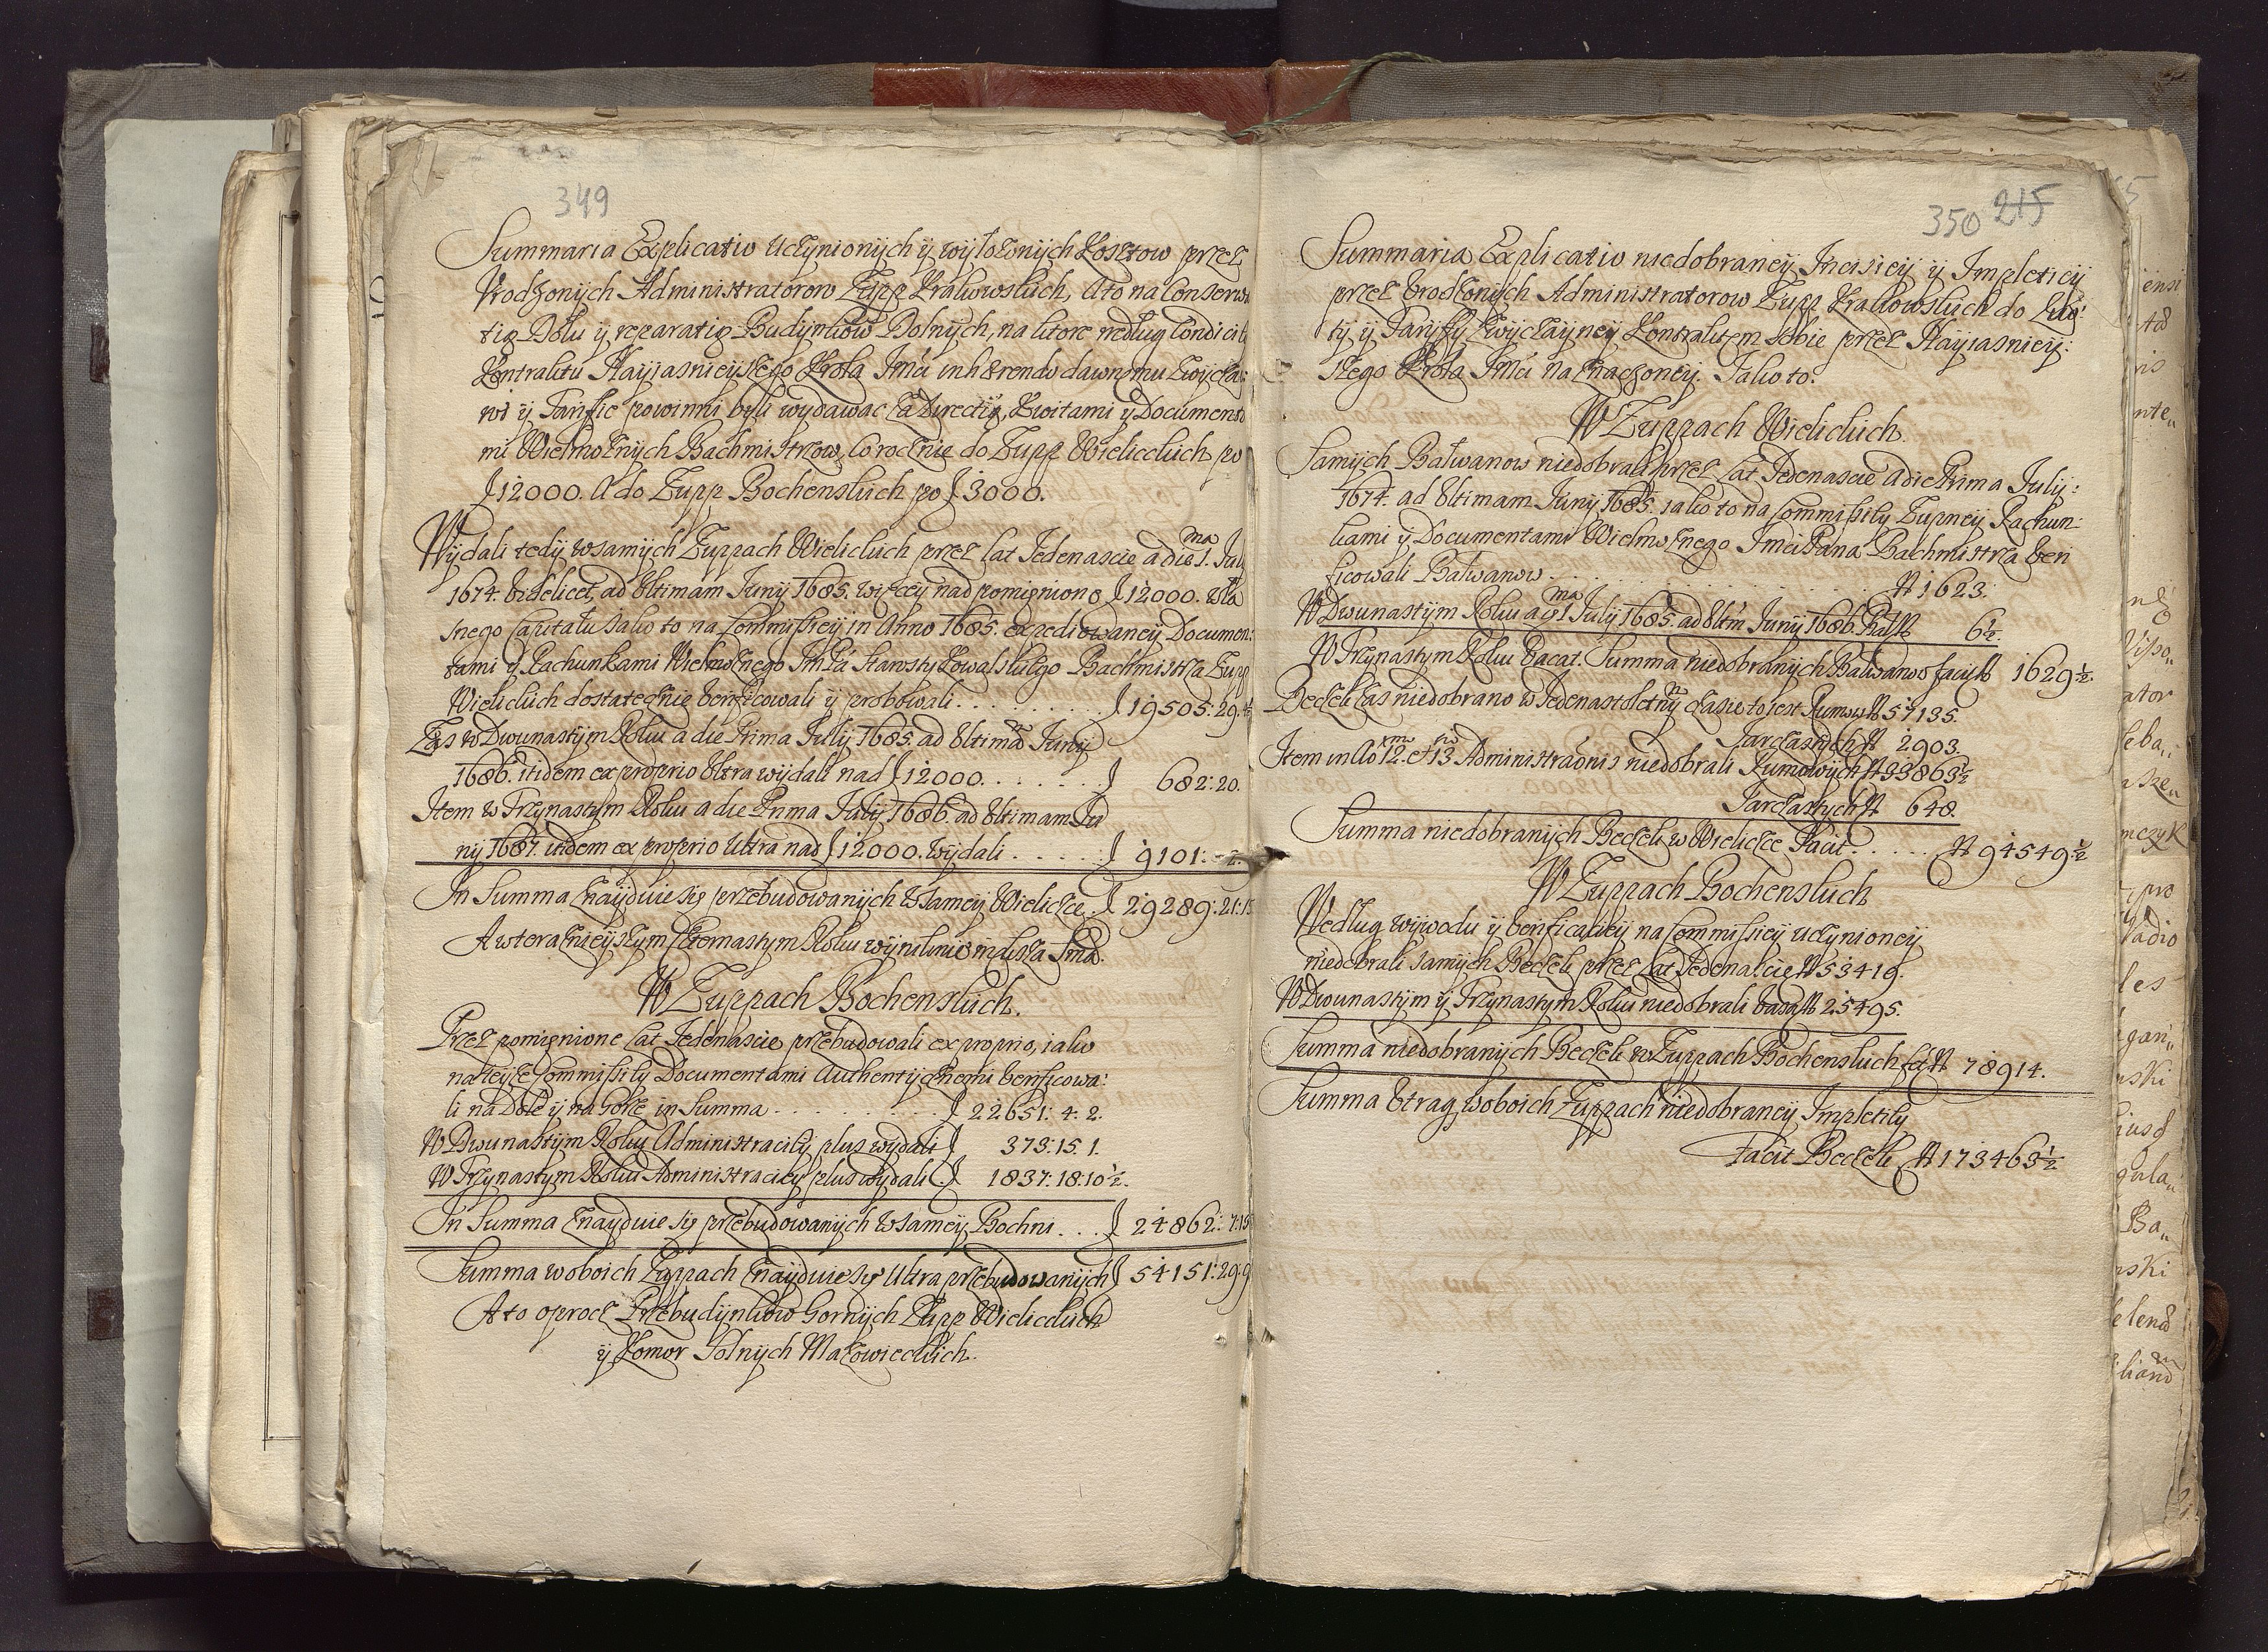 349
Summaria Explicatio uczynionych y wyłożonych Kosztow przez
Vrodzonych Administratorow Zupp Krakowskich, A to na Conserwa
tią Dołu y reparatią Budynkow Dolnych, na ktore według Condicii
Kontraktu Nayiasnieyszego Krola Jmći inhærendo dawnemu Zwycza:
wi y Taryffie powinni byli wydawac za Directią, Kwitami y Documenta
mi Wielmoznych Bachmistrzow, Corocznie do Zupp Wielickich po
f 12000. A do Zupp Bochenskich po f 3000.
Wydali tedy w samych Zuppach Wielickich przez lat Jedenascie a die 1.ma July
1674. videlicet, ad Vltimam Juny 1685. więcey nad pomienione f 12000. wła
snego Capitału jako to na Commissiey in Anno 1685. expediowaney Documen:
tami y Rachunkami Wielmoznego Jm Pá Starosty Kowalskiego Bachmistrza Zupp
Wielickich dostatecznie verificowali y probowali . . . . . . . . f 19505:29.
Zas w Dwunastym Roku a die Prima July 1685. ad Vltimam Juny
1686. itidem ex proprio Vltra wydali nad f 12000. . . . . . . f 682:20.
Item w Trzynastym Roku a die Prima July 1686. ad Vltimam Ju
ny 1687. itidem ex proprio Ultra nad f 12000. wydali . . . . . f 9101:
In Summa Znayduie się przebudowanych w samey Wieliczce . . f 29289:21:15
A w teraznieyszym Czternastym Roku wyniknie
W Zuppach Bochenskich.
Przez pomienione lat Jedenascie przebudowali ex proprio, iako
na teyze Commissiey Documentami Authentycznemi verificowa:
li na Dole y na Gorze in Summa . . . . . . . . . f 22651: 4. 2.
W Dwunastym Roku Administraciey plus wydali f 373:15. 1.
W Trzynastym Roku Administraciey plus wydali f 1837:18:10½.
In Summa Znayduie się przebudowanych w samey Bochni . . . f 24862: 7:15
Summa w oboich Zuppach Znayduie się Ultra przebudowanych f 54151:29:9
A to oprocz Przebudynkow Gornych Zupp Wielickich
y Komor Solnych Mazowieckich.
350 215
Summaria Explicatio niedobraney Incisiey y Impletiey
przez Vrodzonych Administratorow Zupp Krakowskich do
ty y Taryffy Zwyczayney Kontraktem sobie przez Nayiasniey:
szego Krola Jmći naznaczoney. Jako to.
W Zuppach Wielickich.
Samych Bałwanow niedobrali przez lat Jedenascie a die Prima July:
1674. ad Vltimam Juny 1685. iako to na Commissiey Zupney Rachun-
kami y Documentami Wielmoznego Jmći Pana Bachmistrza veri
ficowali Bałwanow . . . . . . . . N 1623.
W Dwunastym Roku a die 1.ma July 1685. ad Vltim Juny 1686. Bał N 6½.
W Trzynastym Roku Vacat. Summa niedobranych Bałwanow facit N 1629½.
Beczek zas niedobrano w Jedenastoletnym czasie to jest Rumow N 57135.
Tarczastych N 2903.
Item in Ao 12.mo et 13.tio Administraonis niedobrali Rumowych N 33863½
Tarczastych N 648.
Summa niedobranych Beczek w Wieliczce Facit . . . . . N 94549½
W Zuppach Bochenskich
Według wywodu y verificatiey na Commissiey uczynioney
niedobrali samych Beczek przez lat Jedenascie N 53419.
W Dwunastym y Trzynastym Roku niedobrali vasa N 25495.
Summa niedobranych Beczek w Zuppach Bochenskich fcit N 78914.
Summa Vtraq w oboich Zuppach niedobraney Impletiey
Facit Beczek N 173463½